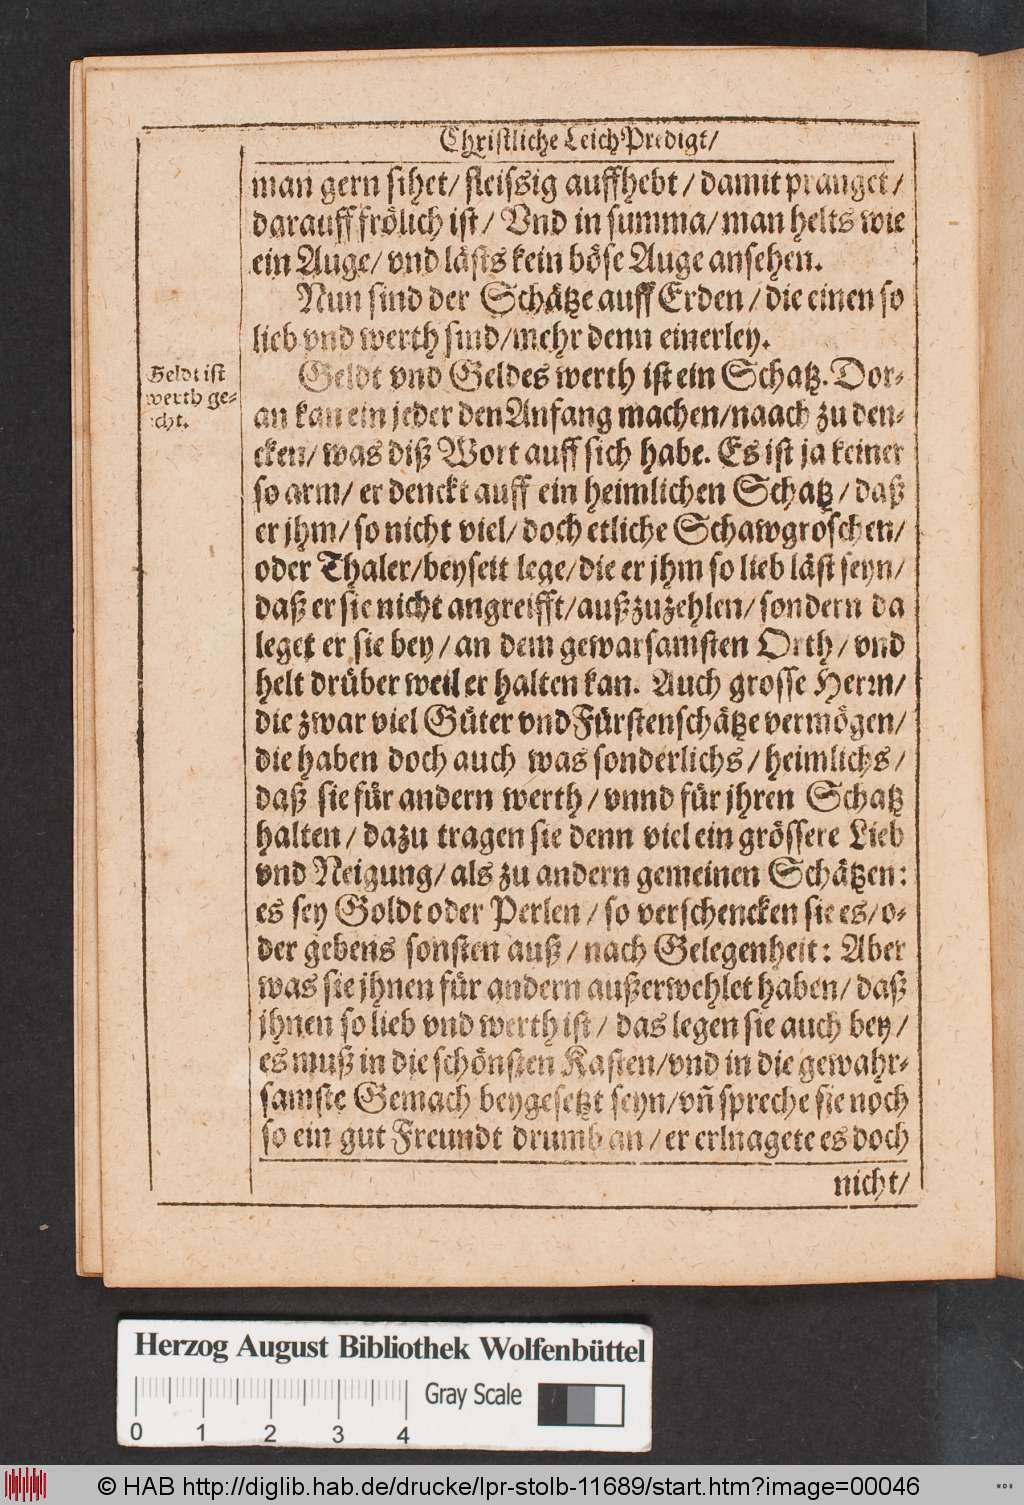 Christliche LeichPredigt/
man gern sihet/ fleissig auffhebt / damit pranget /
darauff frölich ist / Vnd in summa/ man helts wie
ein Auge/ vnd lästs kein böse Auge ansehen.
Nun sind der Schätze auff Erden / die einen so
lieb vnd werth sind/mehr denn einerley.
Geldt ist
werth ge-
acht.
Geldt vnd Geldes werth ist ein Schatz. Dor-
an kan ein jeder den Anfang machen/naach zu den-
cken/ was diß Wort auff sich habe. Es ist ja keiner
so arm/ er denckt auff ein heimlichen Schatz / daß
er jhm/ so nicht viel/ doch etliche Schawgroschen/
oder Thaler/beyseit lege/die er jhm so lieb läst seyn/
daß er sie nicht angreifft/außzuzehlen/ sondern da
leget er sie bey / an dem gewarsamsten Orth / vnd
helt drüber weil er halten kan. Auch grosse Herrn/
die zwar viel Güter vnd Fürstenschätze vermögen/
die haben doch auch was sonderlichs / heimlichs /
daß sie für andern werth / vnnd für jhren Schatz
halten / dazu tragen sie denn viel ein grössere Lieb
vnd Neigung/ als zu andern gemeinen Schätzen:
es sey Goldt oder Perlen / so verschencken sie es/o-
der gebens sonsten auß / nach Gelegenheit: Aber
was sie jhnen für andern außerwehlet haben/ daß
jhnen so lieb vnd werth ist / das legen sie auch bey /
es muß in die schönsten Kasten/vnd in die gewahr-
samste Gemach beygesetzt seyn/vñ spreche sie noch
so ein gut Freundt drumb an / er erlnagete es doch
nicht/
Herzog August Bibliothek Wolfenbüttel
Gray Scale
0 1 2 3 4
© HAB http://diglib.hab.de/drucke/lpr-stolb-11689/start.htm?image=00046